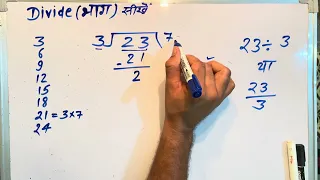 Divide (भाग) सीखें
3
6
9
12
15
18
21 = 3×7
24
3)23(7
-21
2
23÷3
या
23/3